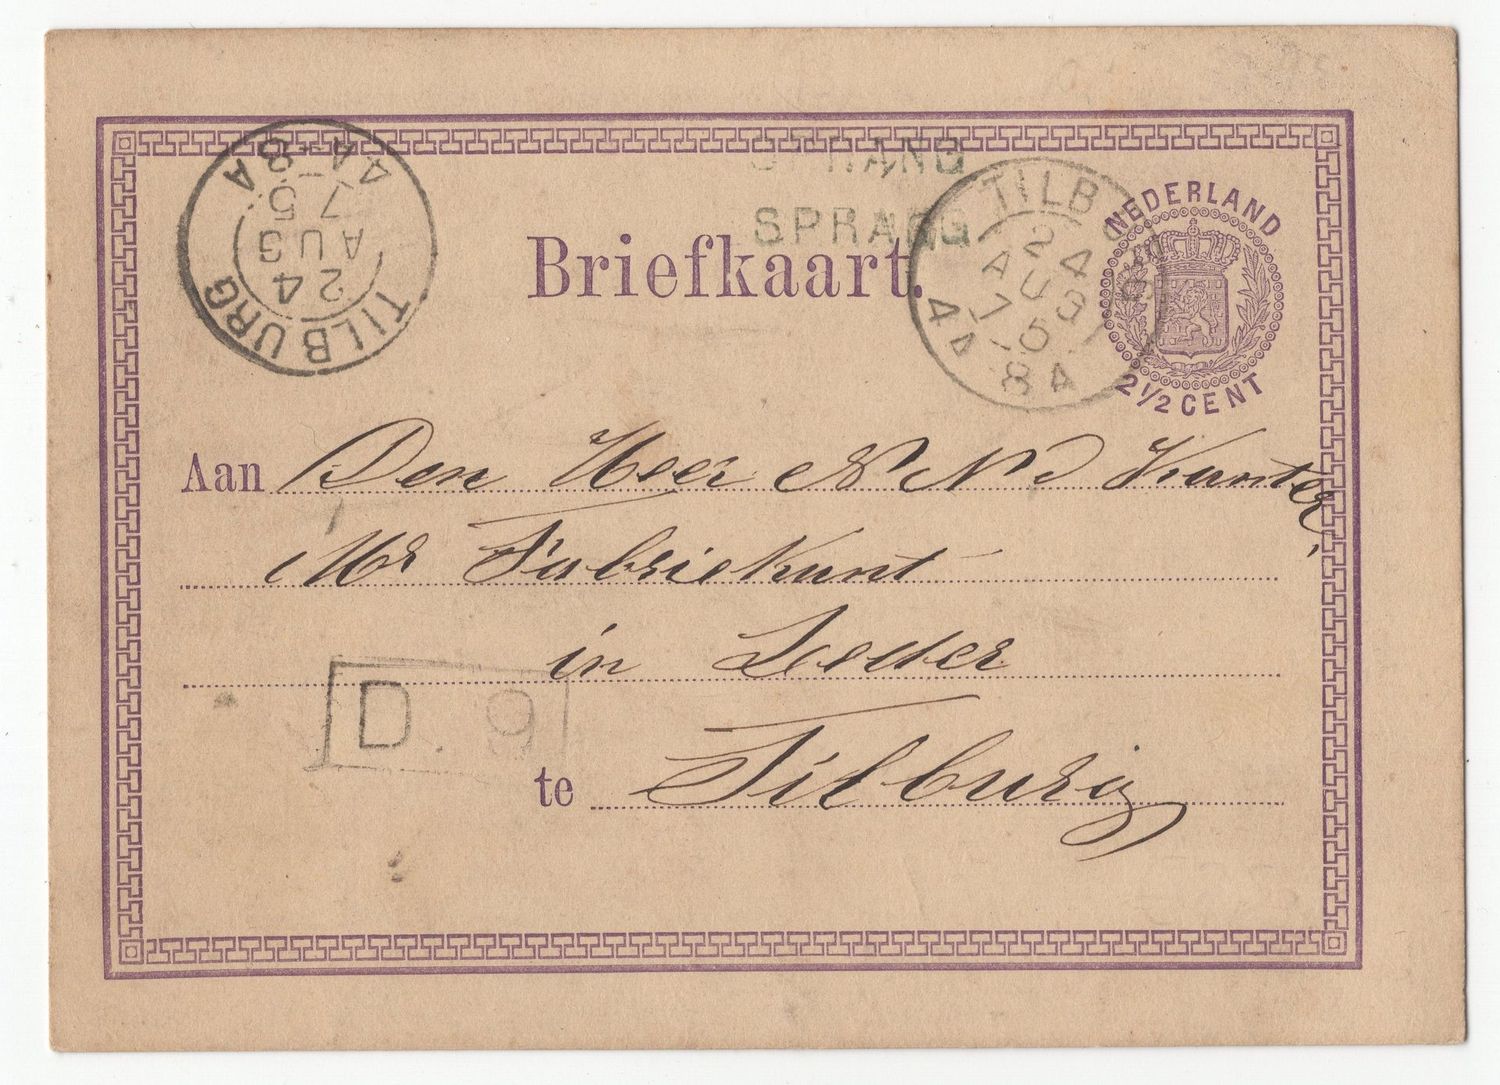 SPRANG
SPRANG
TILBURG
24
AUG
75
4A-8A
TILB
24
AUG
75
4A-8A
NEDERLAND
2½ CENT
Briefkaart.
Aan Den Heer N N
Mr Fabriekant
in Leder
D. 9
te Tilburg